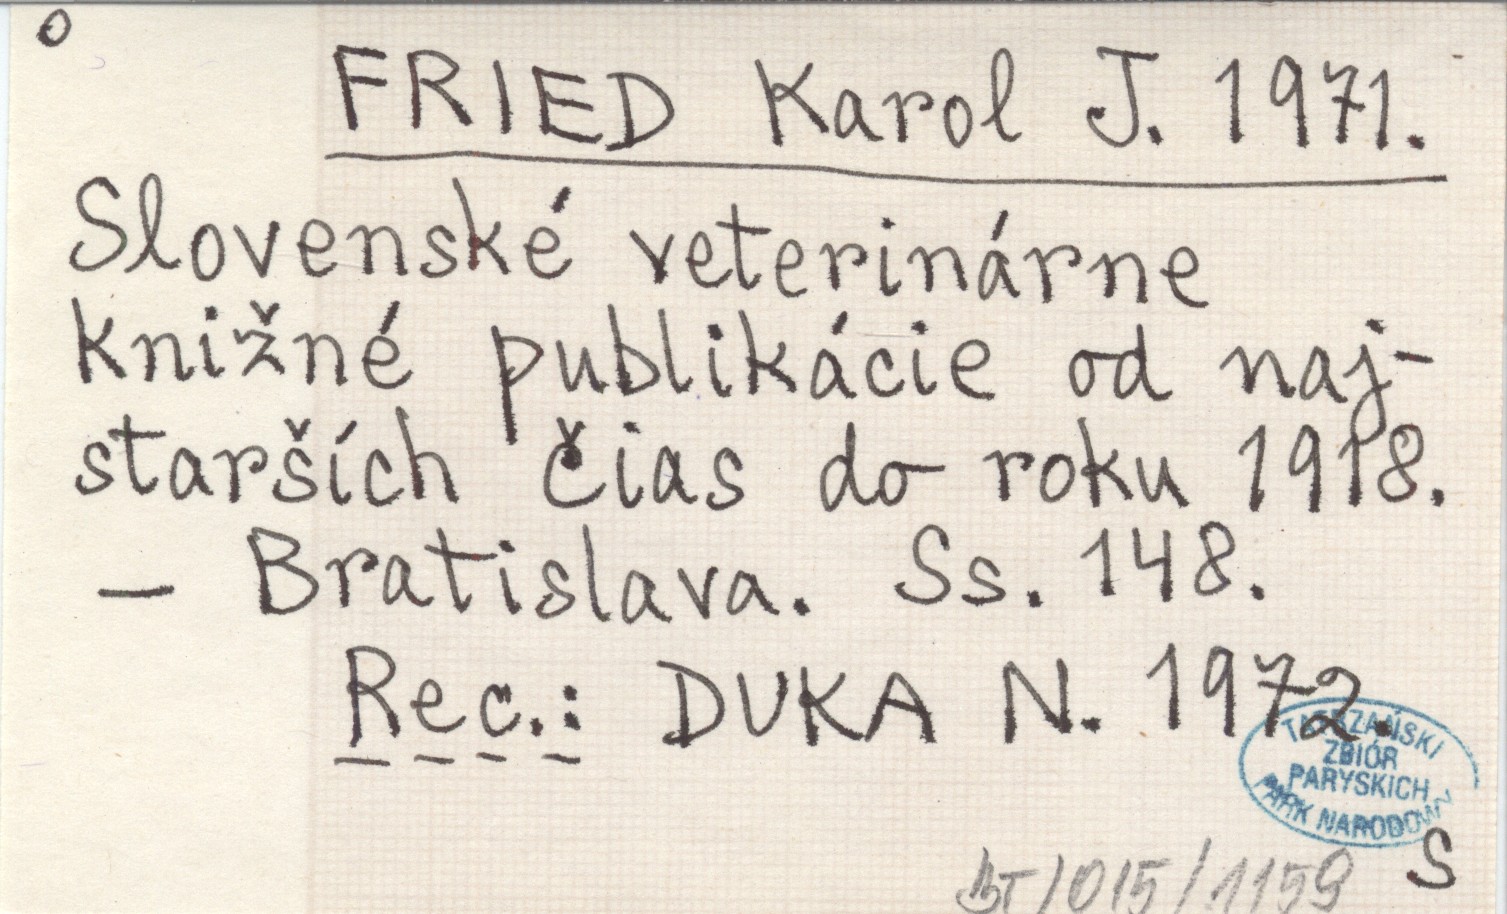 o
FRIED Karol J. 1971.
Slovenské veterinárne
knižné publikácie od naj-
starších čias do roku 1918.
— Bratislava. Ss. 148.
Rec.: DUKA N. 1972.
TATRZAŃSKI
ZBIÓR
PARYSKICH
PARK NARODOWY
S
BT/015/1159